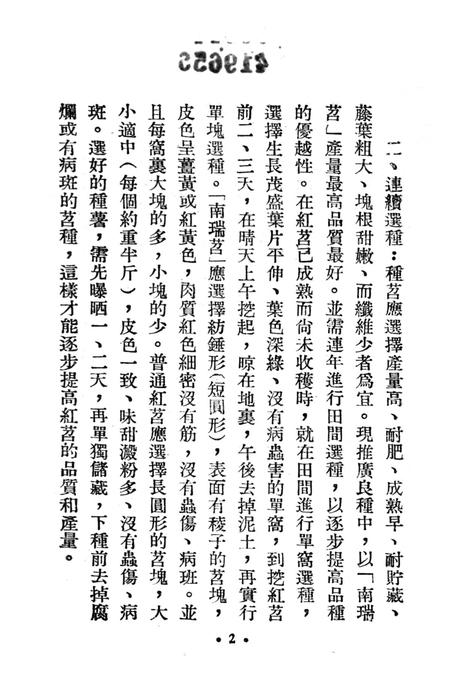 二、連續選種：種苕應選擇產量高、耐肥、成熟早、耐貯藏、
藤葉粗大、塊根甜嫩、而纖維少者爲宜。現推廣良種中，以「南瑞
苕」產量最高品質最好。並需連年進行田間選種，以逐步提高品種
的優越性。在紅苕已成熟而尙未收穫時，就在田間進行單窩選種，
選擇生長茂盛葉片平伸、葉色深綠、沒有病蟲害的單窩，到挖紅苕
前二、三天，在晴天上午挖起，晾在地裏，午後去掉泥土，再實行
單塊選種。「南瑞苕」應選擇紡錘形（短圓形），表面有稜子的苕塊，
皮色呈薑黃或紅黃色，肉質紅色細密沒有筋，沒有蟲傷、病斑。並
且每窩裏大塊的多，小塊的少。普通紅苕應選擇長圓形的苕塊，大
小適中（每個約重半斤），皮色一致、味甜澱粉多、沒有蟲傷、病
斑。選好的種薯，需先曝晒一、二天，再單獨儲藏，下種前去掉腐
爛或有病斑的苕種，這樣才能逐步提高紅苕的品質和產量。
• 2 •